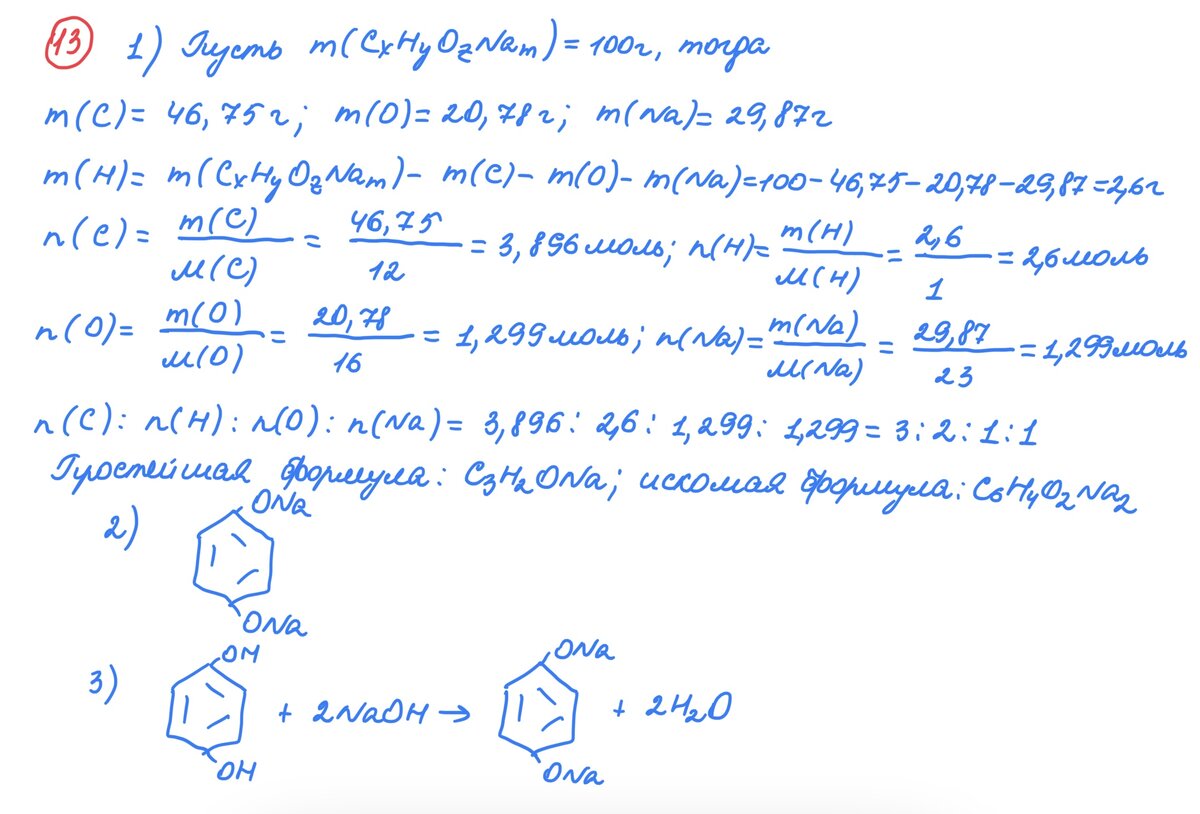 13 1) Пусть m(CxHyOzNam) = 100г, тогда
m(C) = 46,75 г; m(O) = 20,78 г; m(Na) = 29,87г
m(H) = m(CxHyOzNam) - m(C) - m(O) - m(Na) = 100 - 46,75 - 20,78 - 29,87 = 2,6г
n(C) = m(C)/M(C) = 46,75/12 = 3,896 моль; n(H) = m(H)/M(H) = 2,6/1 = 2,6 моль
n(O) = m(O)/M(O) = 20,78/16 = 1,299 моль; n(Na) = m(Na)/M(Na) = 29,87/23 = 1,299 моль
n(C) : n(H) : n(O) : n(Na) = 3,896 : 2,6 : 1,299 : 1,299 = 3 : 2 : 1 : 1
Простейшая формула: C3H2ONa; искомая формула: C6H4O2Na2
2) ONa
ONa
3) OH ONa
+ 2NaOH → + 2H2O
OH ONa